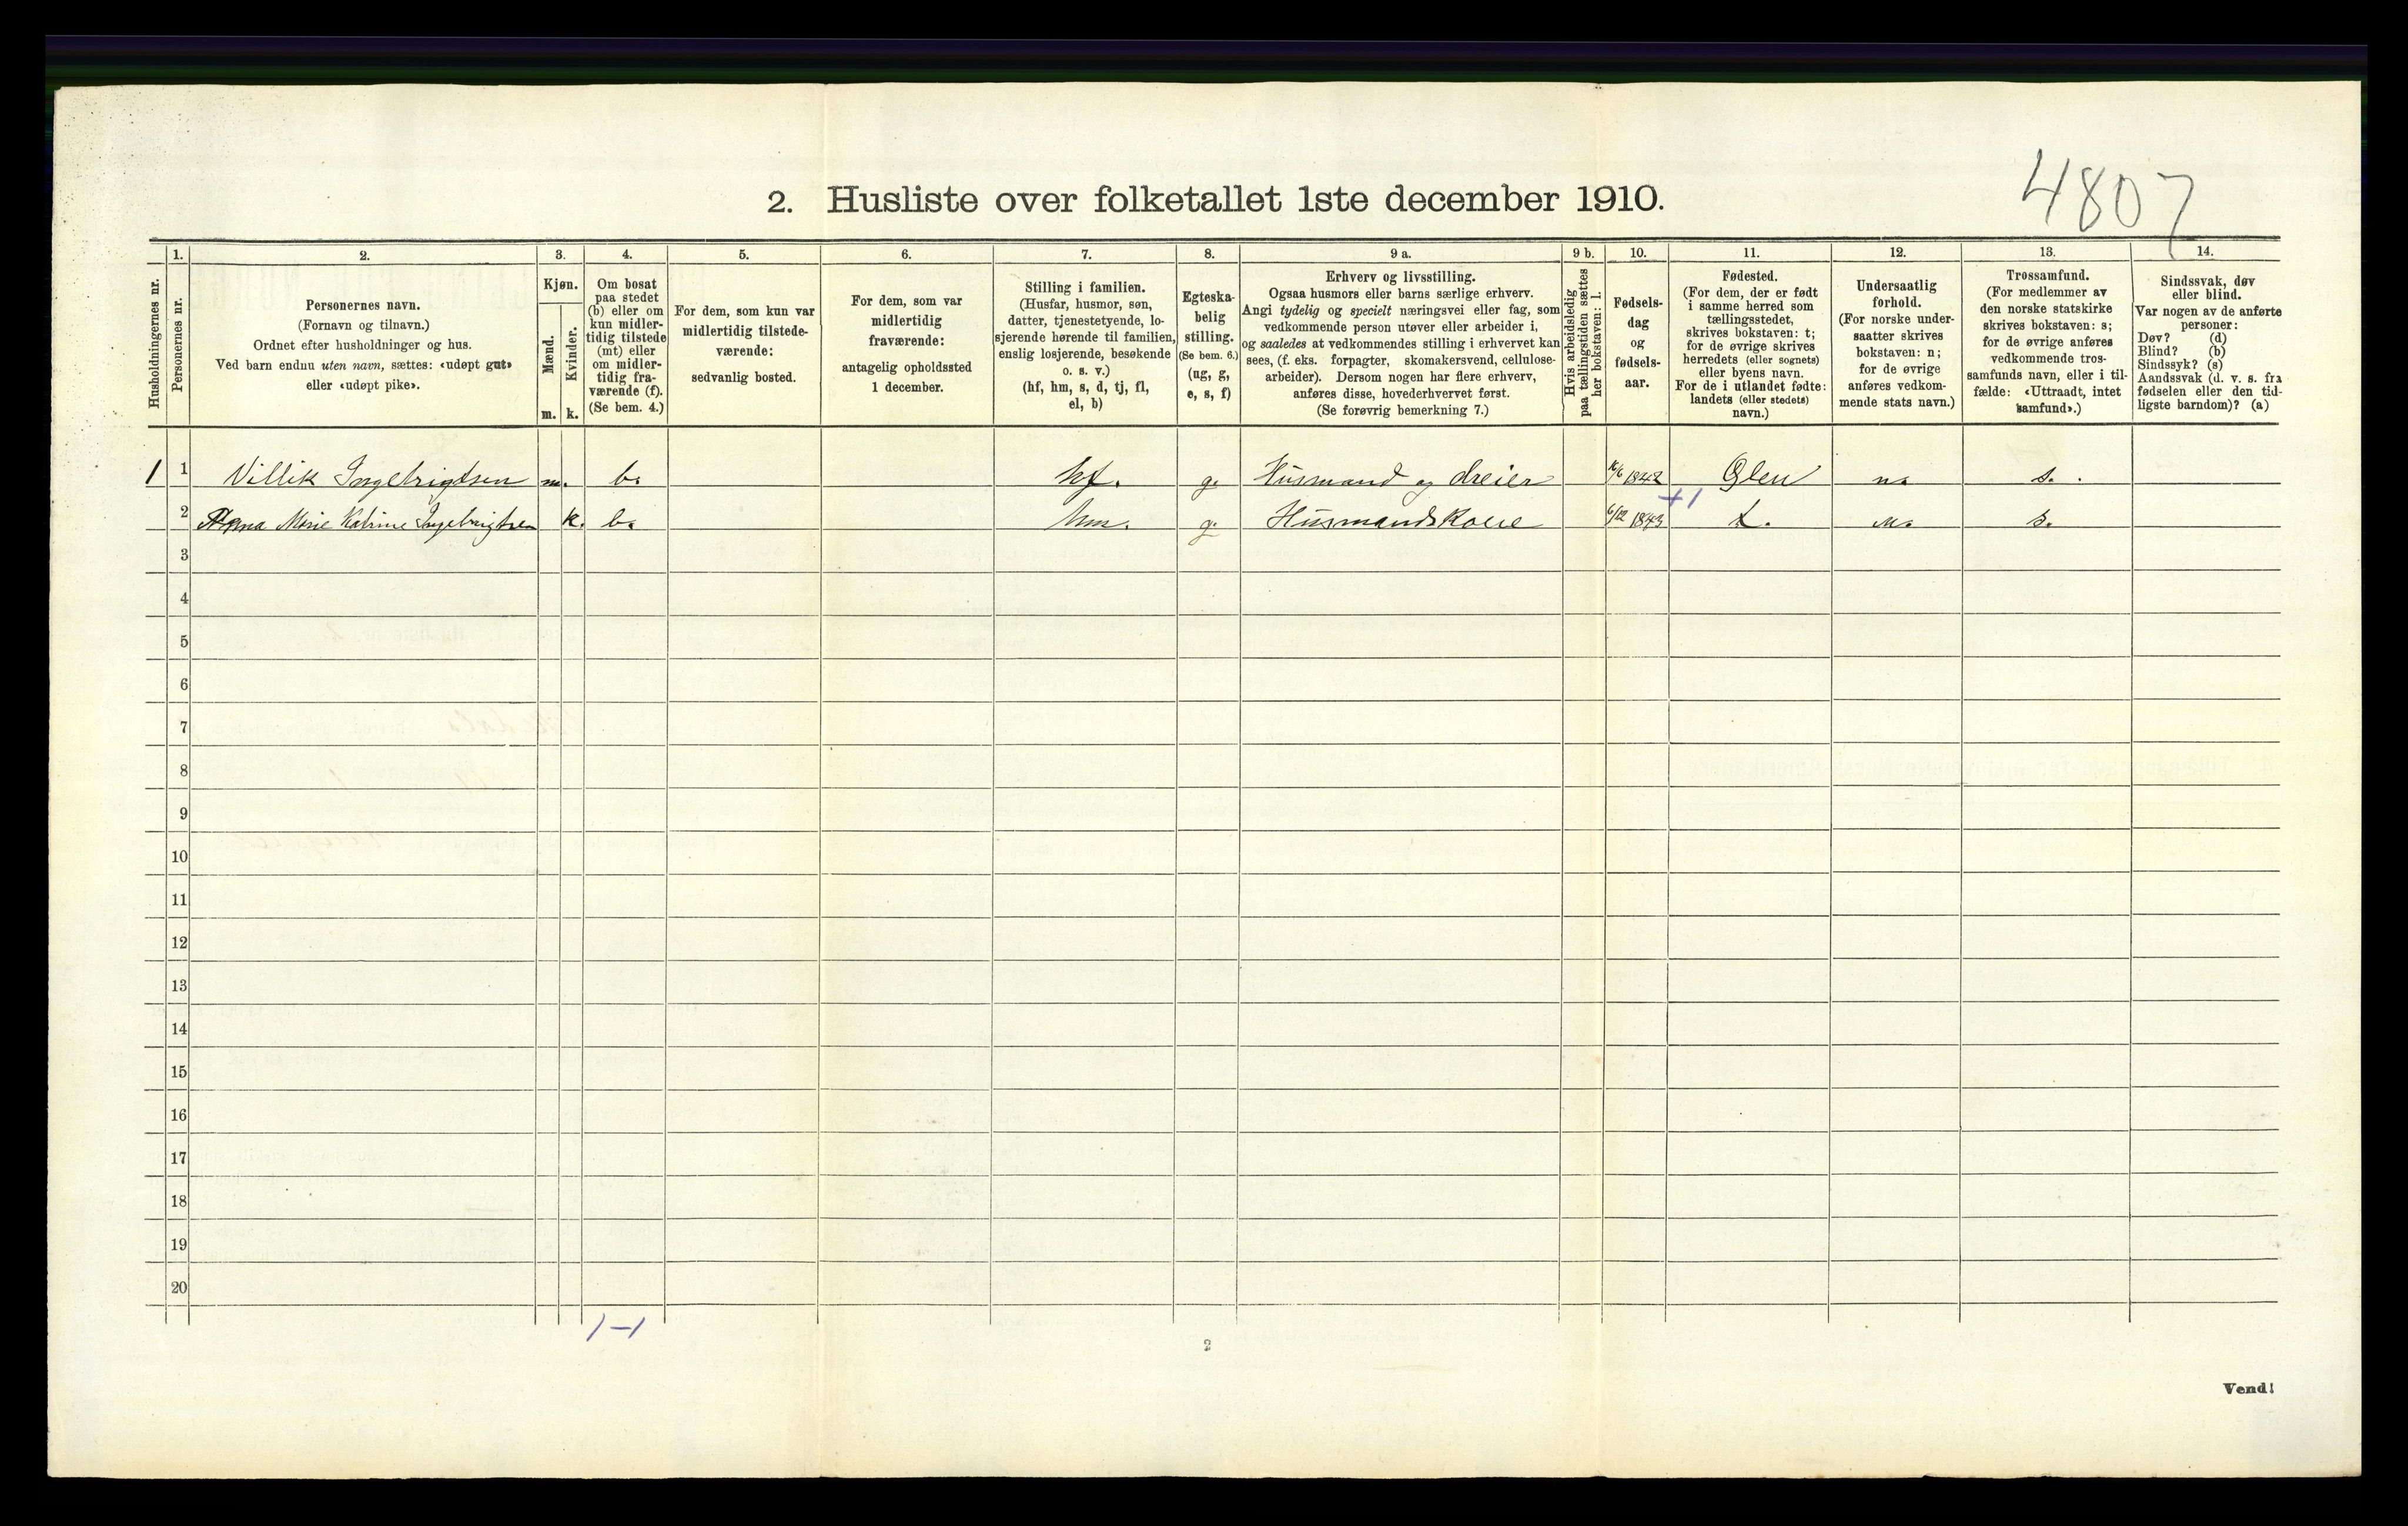 4807
2. Husliste over folketallet 1ste december 1910.
Husholdningernes nr.
1.
Personernes nr.
2.
Personernes navn.
(Fornavn og tilnavn.)
Ordnet efter husholdninger og hus.
Ved barn endnu uten navn, sættes: «udøpt gut»
eller «udøpt pike».
3.
Kjøn.
Mænd.
m.
Kvinder.
k.
4.
Om bosat
paa stedet
(b) eller om
kun midler-
tidig tilstede
(mt) eller
om midler-
tidig fra-
værende (f).
(Se bem. 4.)
5.
For dem, som kun var
midlertidig tilstede-
værende:
sedvanlig bosted.
6.
For dem, som var
midlertidig
fraværende:
antagelig opholdssted
1 december.
7.
Stilling i familien.
(Husfar, husmor, søn,
datter, tjenestetyende, lo-
sjerende hørende til familien,
enslig losjerende, besøkende
o. s. v.)
(hf, hm, s, d, tj, fl,
el, b)
8.
Egteska-
belig
stilling.
(Se bem. 6.)
(ug, g,
e, s, f)
9 a.
Erhverv og livsstilling.
Ogsaa husmors eller barns særlige erhverv.
Angi tydelig og specielt næringsvei eller fag, som
vedkommende person utøver eller arbeider i,
og saaledes at vedkommendes stilling i erhvervet kan
sees, (f. eks. forpagter, skomakersvend, cellulose-
arbeider). Dersom nogen har flere erhverv,
anføres disse, hovederhvervet først.
(Se forøvrig bemerkning 7.)
9 b.
Hvis arbeidsledig
paa tællingstiden sættes
her bokstaven: l.
10.
Fødsels-
dag
og
fødsels-
aar.
11.
Fødested.
(For dem, der er født
i samme herred som
tællingsstedet,
skrives bokstaven: t;
for de øvrige skrives
herredets (eller sognets)
eller byens navn.
For de i utlandet fødte:
landets (eller stedets)
navn.)
12.
Undersaatlig
forhold.
(For norske under-
saatter skrives
bokstaven: n;
for de øvrige
anføres vedkom-
mende stats navn.)
13.
Trossamfund.
(For medlemmer av
den norske statskirke
skrives bokstaven: s;
for de øvrige anføres
vedkommende tros-
samfunds navn, eller i til-
fælde: «Uttraadt, intet
samfund».)
14.
Sindssvak, døv
eller blind.
Var nogen av de anførte
personer:
Døv? (d)
Blind? (b)
Sindssyk? (s)
Aandssvak (d. v. s. fra
fødselen eller den tid-
ligste barndom)? (a)
1 1 Villik Ingebrigtsen m. b. hf. g. Husmand og dreier 1842 Ølen n. s.
2 Marie Katrine Ingebrigtsen k. b. hm. g. Husmandskone 6/12 1843 +1 t. n. s.
3
4
5
6
7
8
9
10
11
12
13
14
15
16
17
18
19
20
1-1
2
Vend!